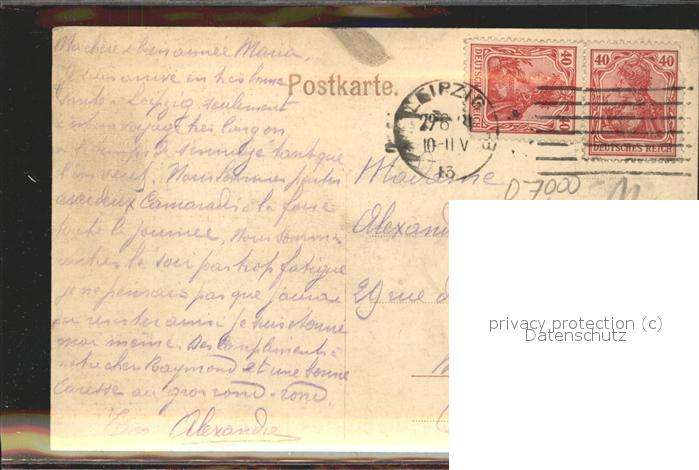 Ma chère et bien aimée Maria,
Je suis arrivé en très bonne
Santé à Leipzig seulement
voyage très long on
le temps de
Nous sommes partis
avec deux Camarades à la foire
toute la journée, Nous sommes
rentrés le soir pas trop fatigué
je ne pensais pas que j'aurai
pu résister aussi je suis étonné
moi même. Des Compliments à
notre cher Raymond et une bonne
Caresse au gros rond-rond.
Ton Alexandre
Postkarte.
LEIPZIG
29 8
10-11 V
13
40 40
DEUTSCHES REICH
40 40
DEUTSCHES REICH
D 7000
Madame
Alexand
29 rue d
privacy protection (c)
Datenschutz